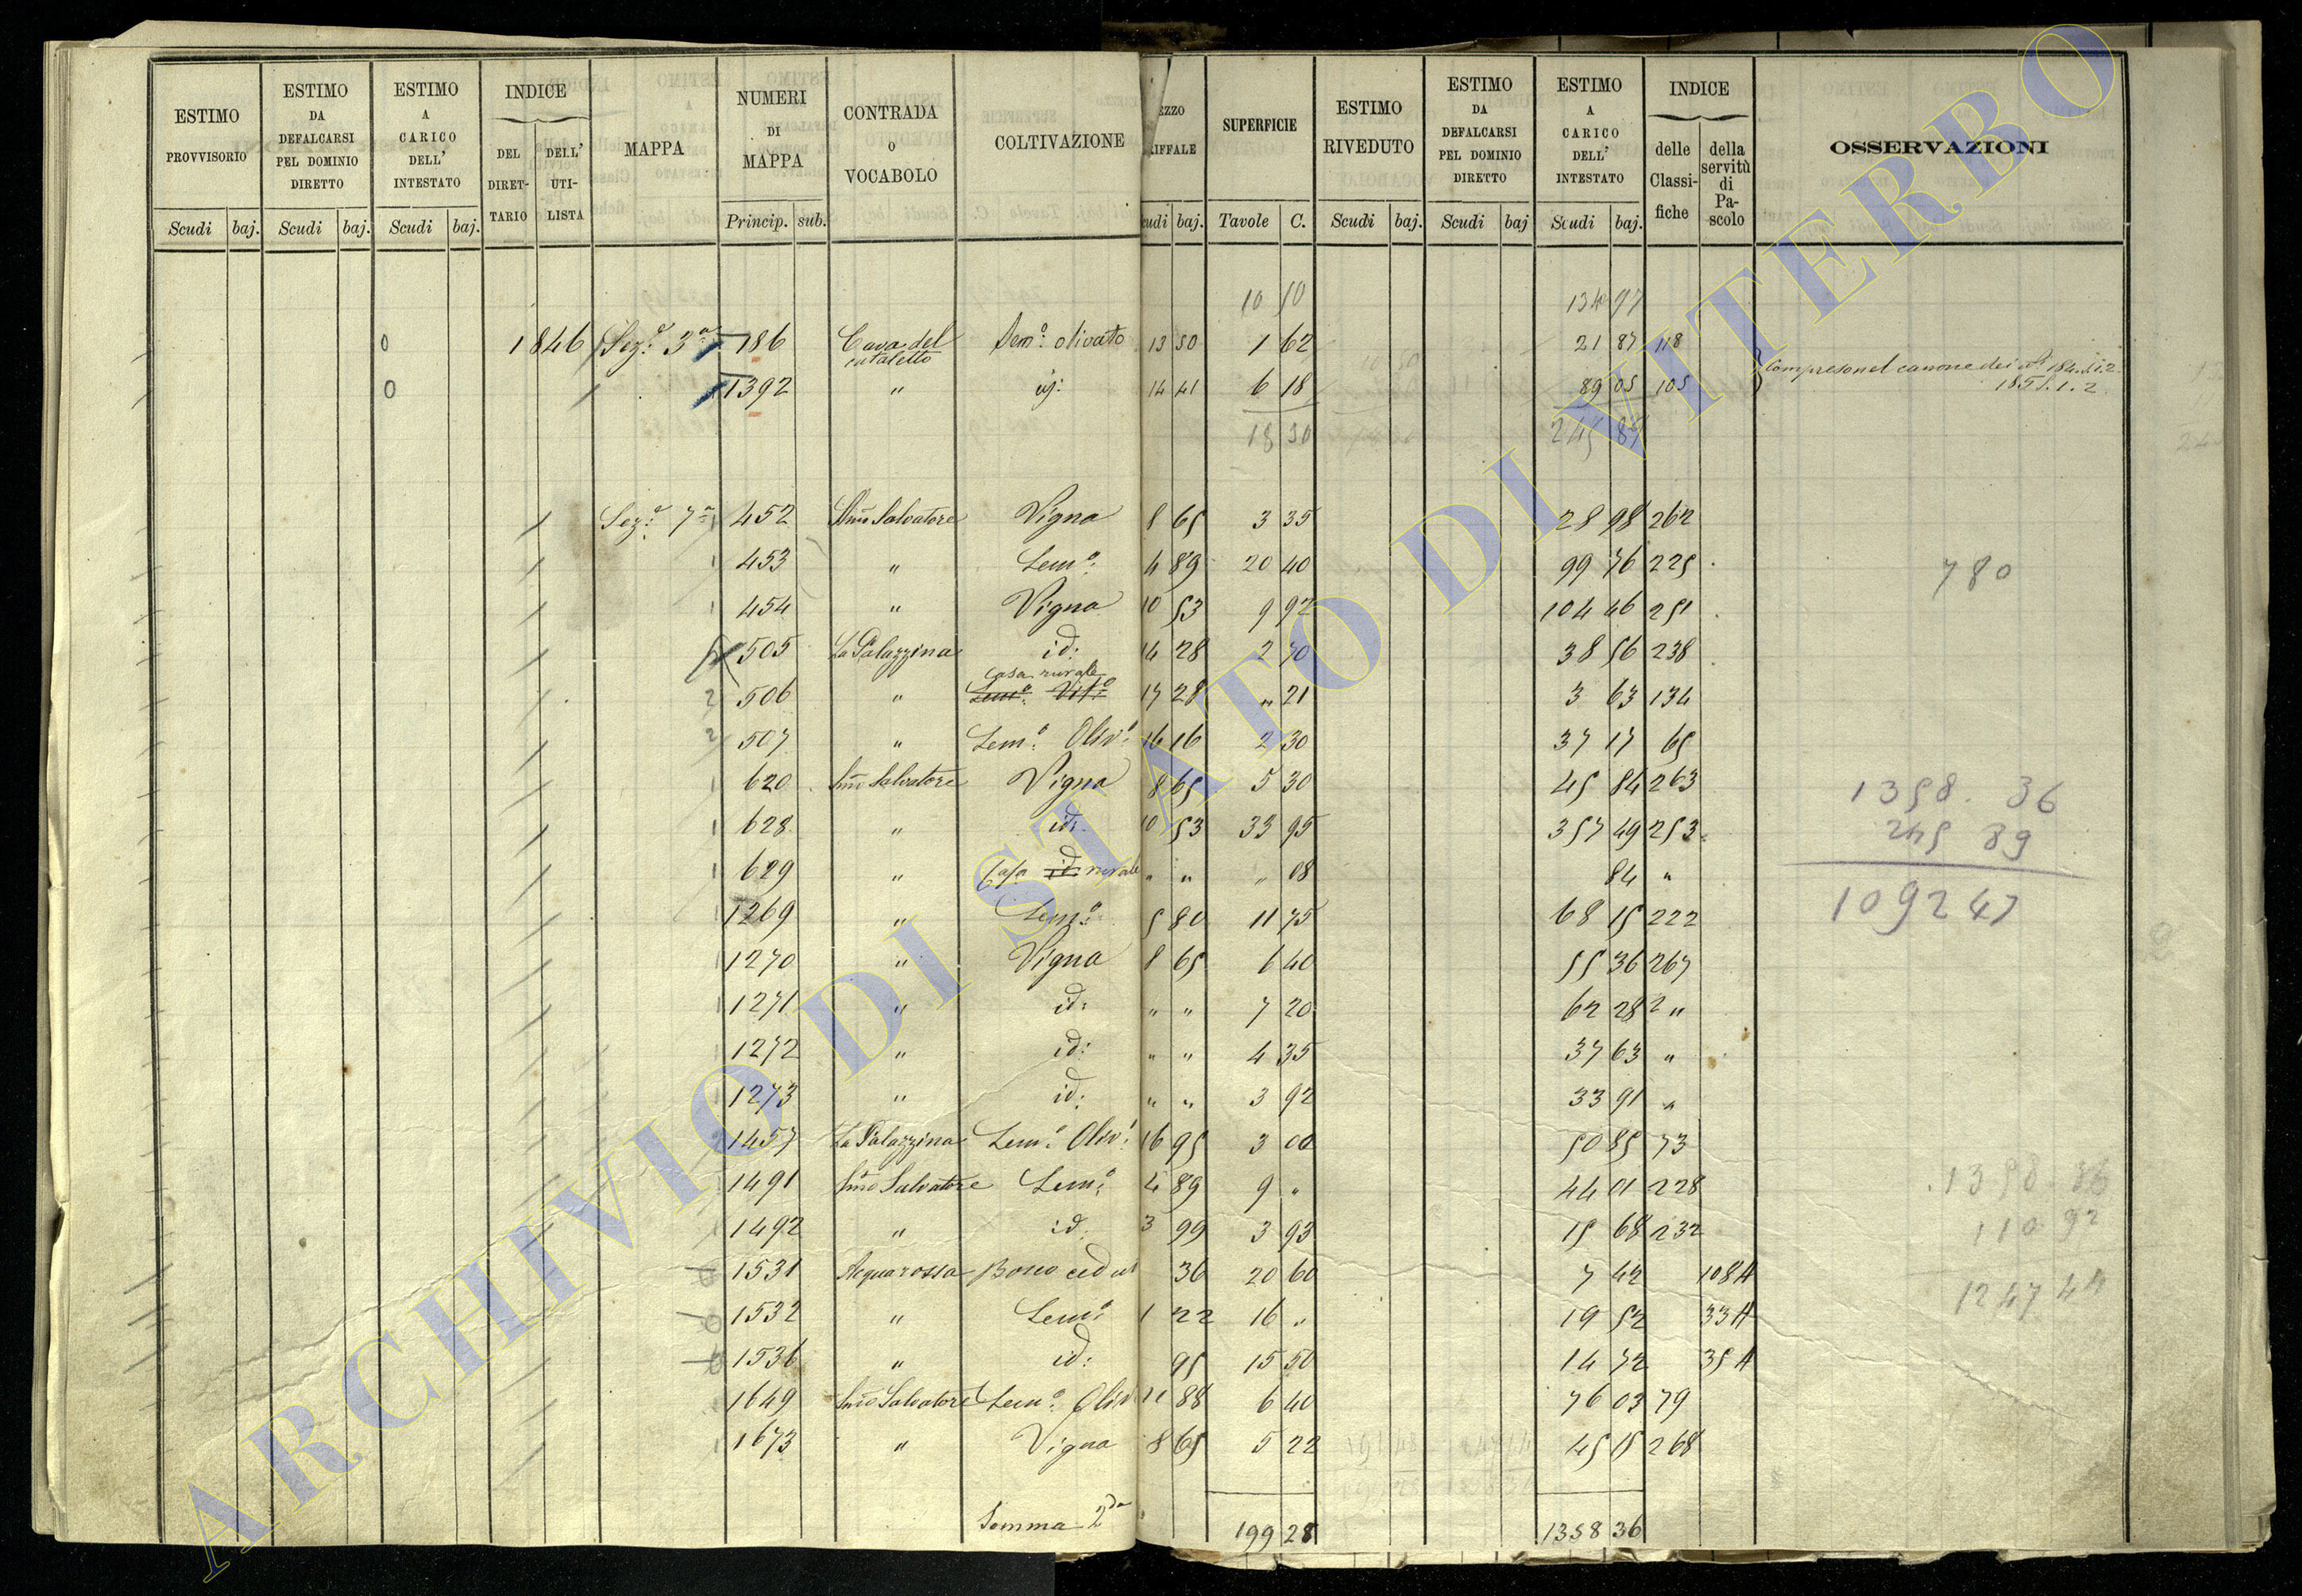 ESTIMO PROVVISORIO | ESTIMO DA DEFALCARSI PEL DOMINIO DIRETTO | ESTIMO A CARICO DELL' INTESTATO | INDICE DEL DIRETTARIO | DELL' UTILISTA | MAPPA | NUMERI DI MAPPA | CONTRADA O VOCABOLO | COLTIVAZIONE | EZZO RIFFALE | SUPERFICIE | ESTIMO RIVEDUTO | ESTIMO DA DEFALCARSI PEL DOMINIO DIRETTO | ESTIMO A CARICO DELL' INTESTATO | INDICE delle Classifiche | della servitù di Pascolo | OSSERVAZIONI
Scudi baj. | Scudi baj. | Scudi baj. | Princip. sub. | cudi baj. | Tavole C. | Scudi baj. | Scudi baj | Scudi baj.
10 50 134 97
0 1846 Sez.e 3a 186 Cava del cataletto Sem.o olivato 13 50 1 62 21 87 118
0 1392 " id: 14 41 6 18 89 05 105 Compreso nel canone dei ni 184.1.2. 185.1.2.
18 30 245 89
Sez.e 7a 452 Smo Salvatore Vigna 8 65 3 35 28 98 262
453 " Sem.o 4 89 20 40 99 76 225 780
454 " Vigna 10 53 9 92 104 46 251
505 La Palazzina id: 14 28 2 70 38 56 238
2 506 " casa rurale 17 28 " 21 3 63 134
2 507 " Sem.o Oliv.o 16 16 2 30 37 17 65
1 620 Smo Salvatore Vigna 8 65 5 30 45 84 263 1358. 36
1 628 " id: 10 53 33 95 357 49 253 245 89
1 629 " Casa id: rurale " " " 08 84 " 1092 47
1269 " Sem.o 5 80 11 75 68 15 222
1270 " Vigna 8 65 6 40 55 36 267
1271 " id: " " 7 20 62 28 "
1272 " id: " " 4 35 37 63 "
1273 " id: " " 3 92 33 91 "
2 1457 La Palazzina Sem.o Oliv. 16 95 3 00 50 85 73
1491 Smo Salvatore Sem.o 4 89 9 " 44 01 228 1358 36
1492 " id: 3 99 3 93 15 68 232 110 92
1531 Acquarossa Bosco ced 36 20 60 7 42 108 A 1247 44
1532 " Sem.o 1 22 16 " 19 52 33 A
1536 " id: 95 15 50 14 72 35 A
1649 Smo Salvatore Sem.o Oliv 11 88 6 40 76 03 79
1673 " Vigna 8 65 5 22 45 15 268
Somma 2da 199 28 1358 36
ARCHIVIO DI STATO DI VITERBO